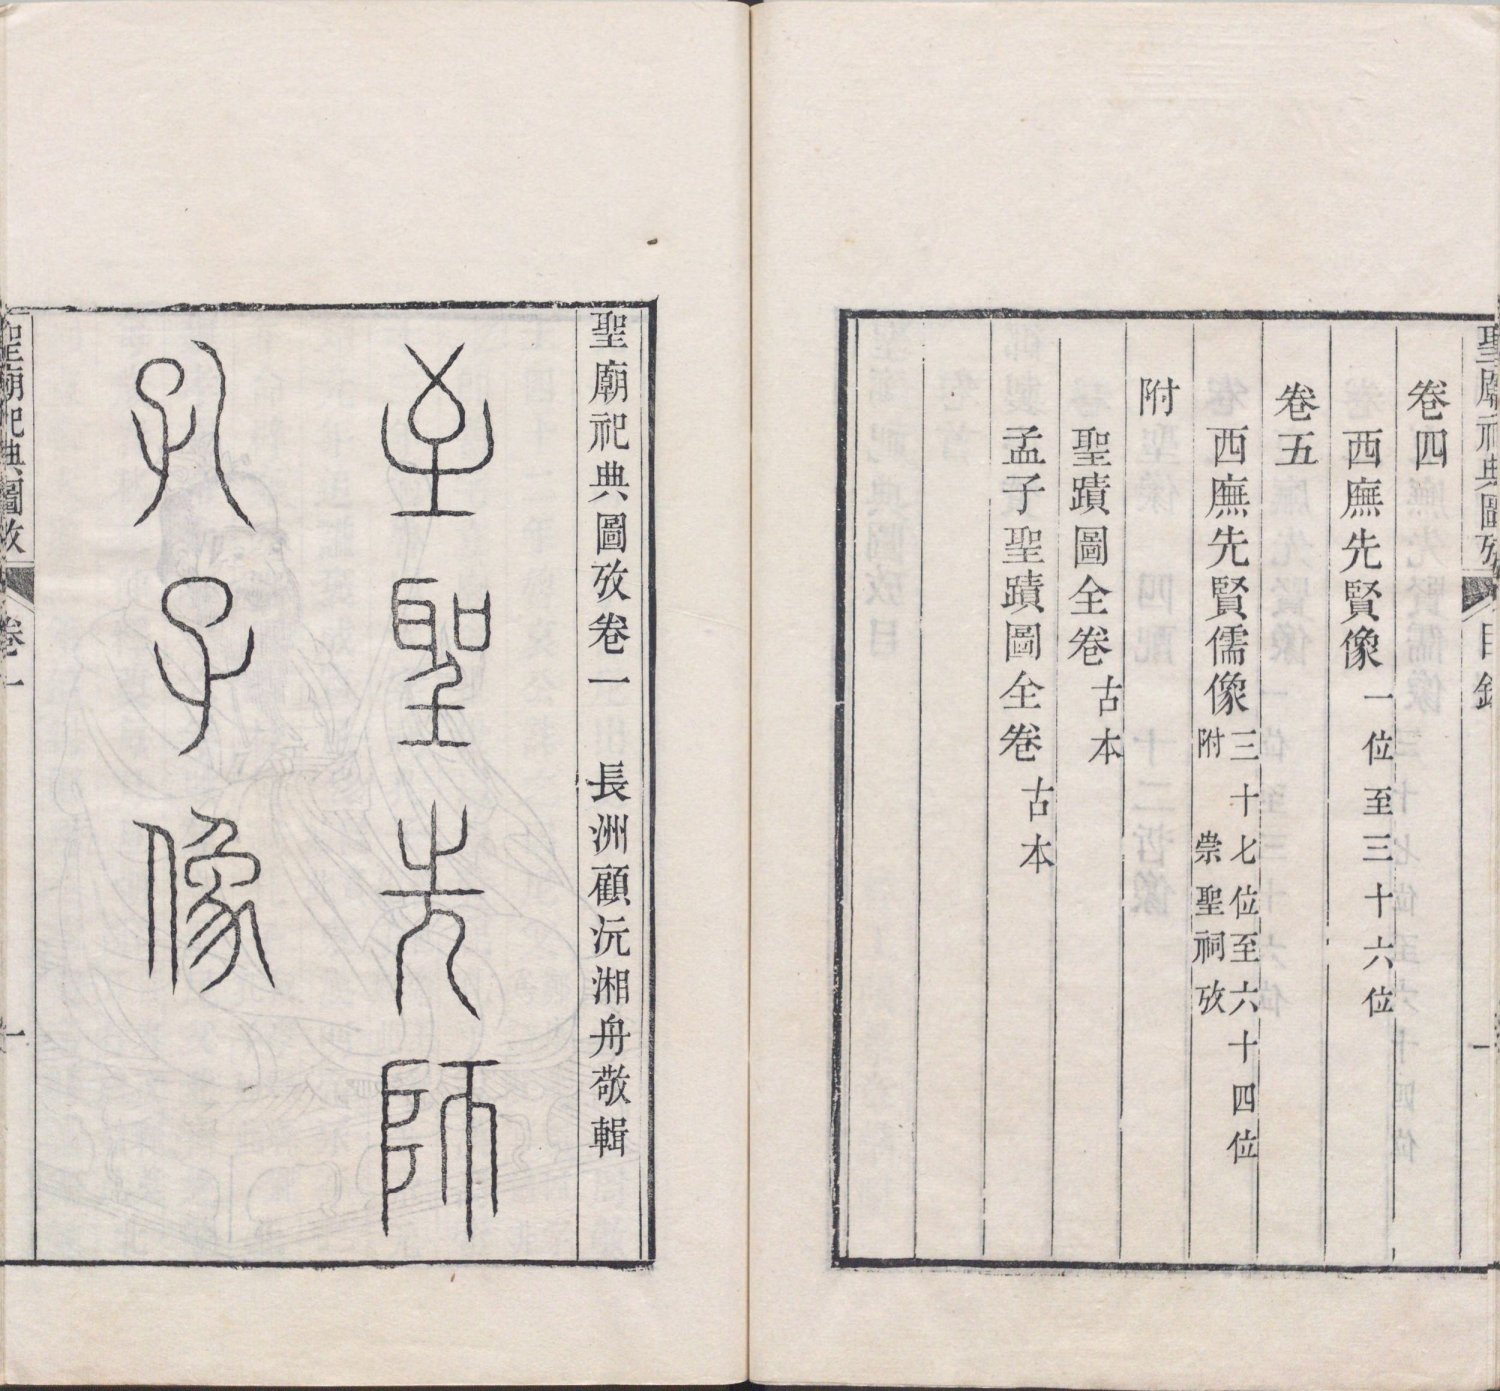 聖廟祀典圖攷 目錄 一
卷四
西廡先賢像 一位至三十六位
卷五
西廡先賢儒像 三十七位至六十四位
附 崇聖祠攷
附
聖蹟圖全卷 古本
孟子聖蹟圖全卷 古本
聖廟祀典圖攷卷一 長洲顧沅湘舟敬輯
至聖先師
孔子像
聖廟祀典圖攷 卷一 一